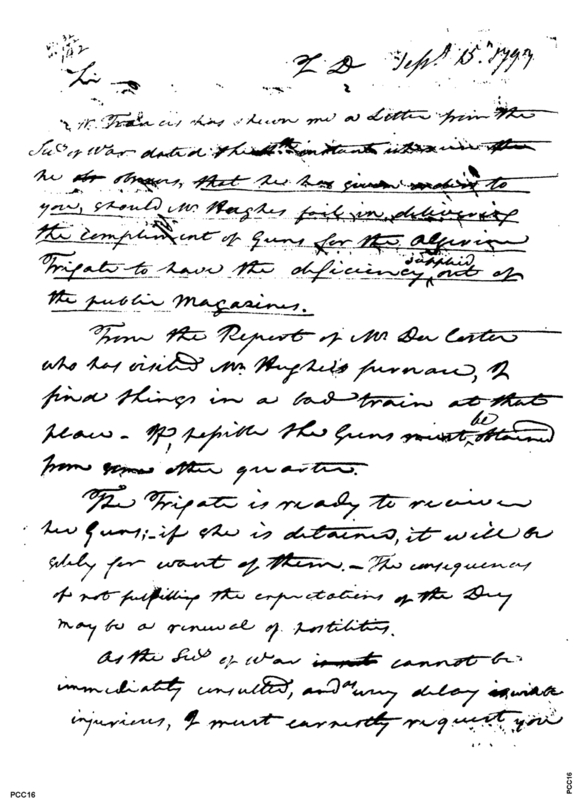 142
Sir
T D Sept. 15. 1797
Mr Francis has shewn me a Letter from the
Secy of War dated the instant wherein
he observes, that he has given orders to
you, should Mr Hughes fail in delivering
the compliment of Guns for the Algerine
Frigate to have the deficiency supplied out of
the public Magazines.
From the Report of Mr De Coster
who has visited Mr Hughes's furnace, I
find things in a bad train at that
place - If possible the Guns must be obtained
from some other quarter.
The Frigate is ready to receive
her Guns;- if she is detained, it will be
solely for want of them. - The consequences
of not fulfilling the expectations of the Dey
may be a renewal of hostilities.
As the Secy of War cannot be
immediately consulted, and as any delay
injurious, I must earnestly request you
PCC16
PCC16